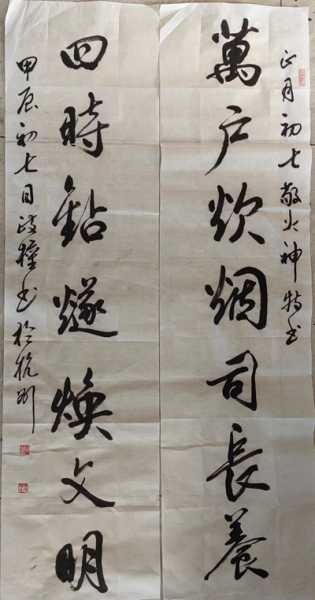 正月初七敬火神特书
萬户炊烟司長養
四時鉆燧焕文明
甲辰初七日政權书於杭州